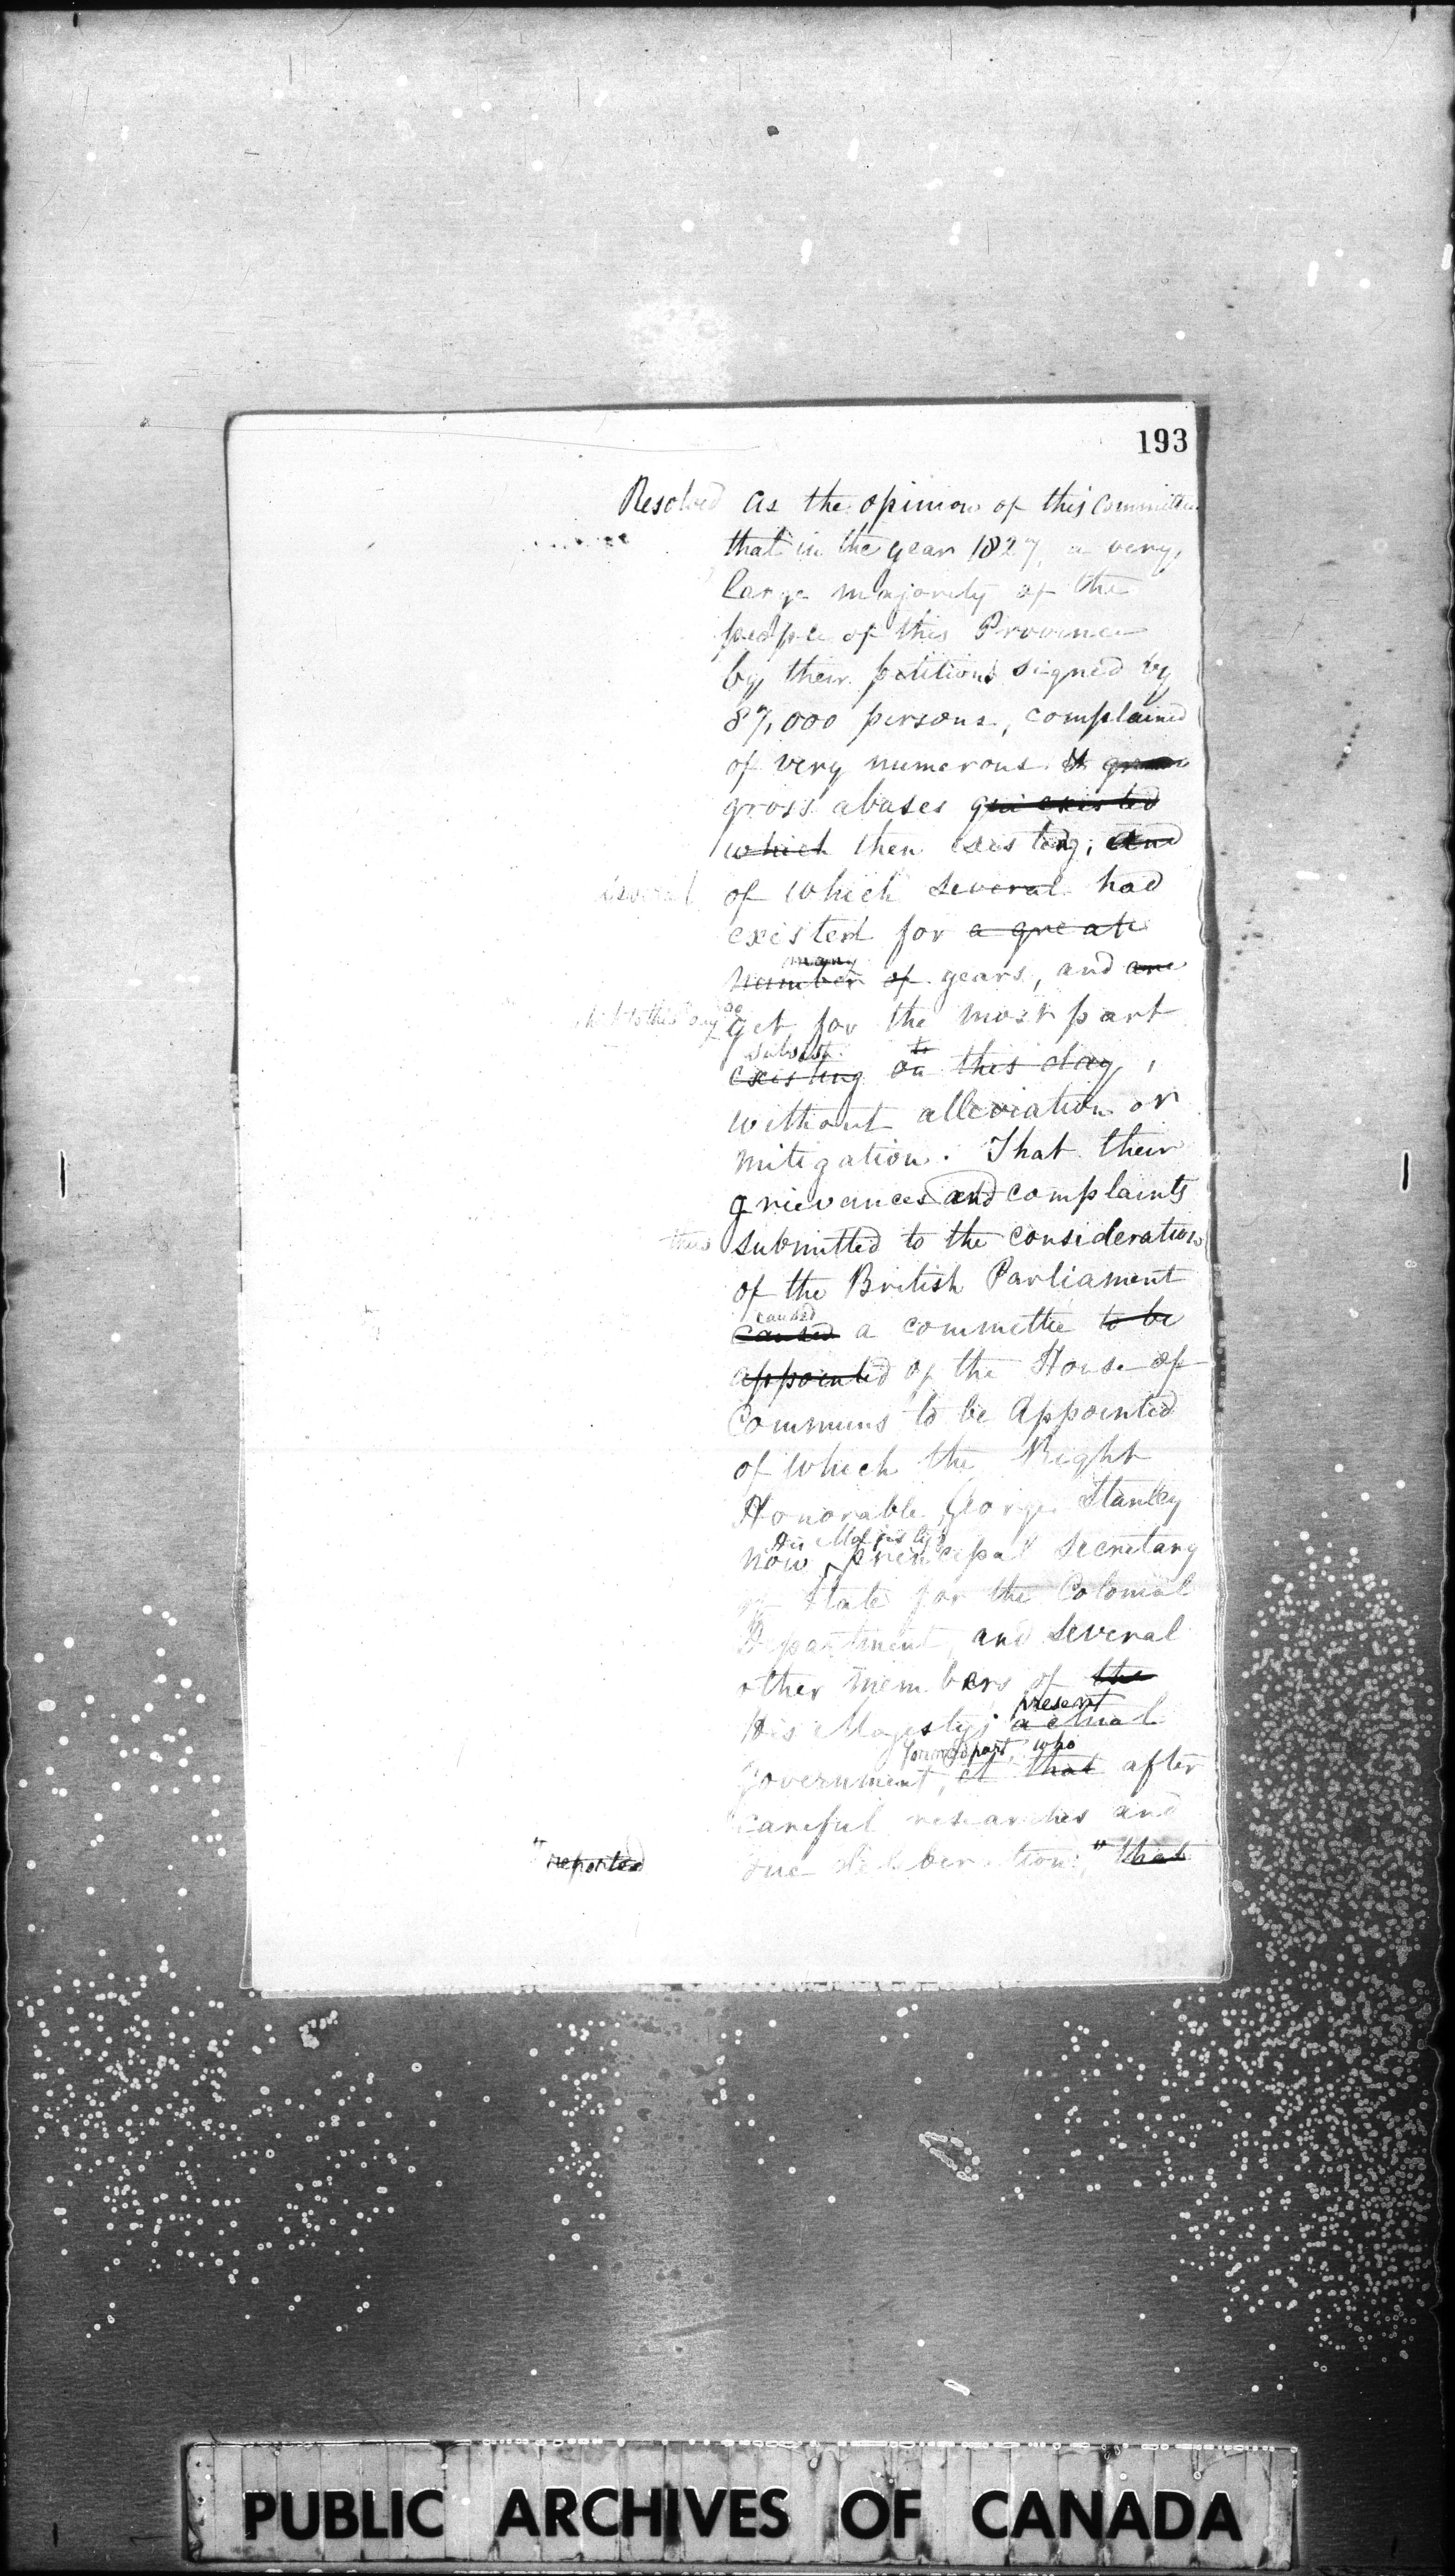 193
Resolved as the opinion of this Committee
that in the year 1827, a very
large majority of the
people of this Province
by their petitions signed by
87,000 persons, complained
of very numerous &
gross abuses qui existed
which then existing; and
several of which several had
existed for a great
many
number of years, and are
which to this day do
yet for the most part
subsist to
existing on this day,
without alleviation or
mitigation. That their
grievances and complaints
thus submitted to the consideration
of the British Parliament
caused
caused a committee to be
appointed of the House of
Commons to be Appointed
of which the Right
Honorable George Stanley
His Majesty's
now principal Secretary
of State for the Colonial
Department, and several
other members of the
present
His Majesty's actual
formed part, who
Government, et that after
careful researches and
"reported due deliberation," that
PUBLIC ARCHIVES OF CANADA